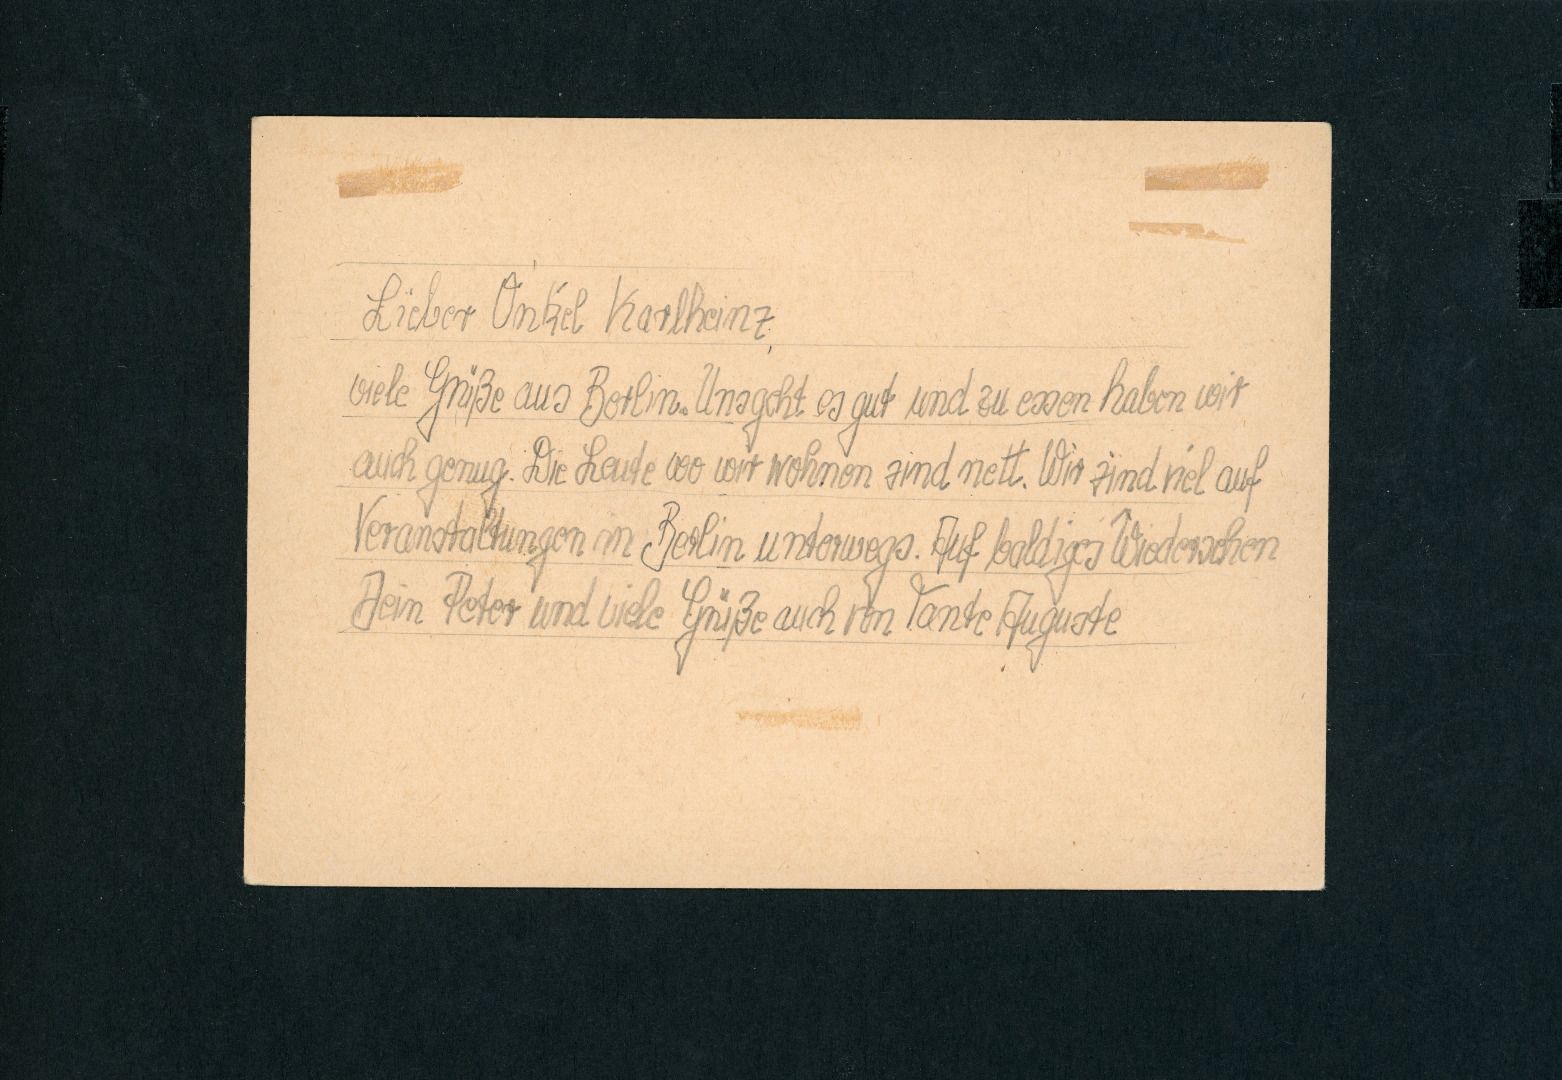 Lieber Onkel Karlheinz,
viele Grüße aus Berlin. Uns geht es gut und zu essen haben wir
auch genug. Die Leute wo wir wohnen sind nett. Wir sind viel auf
Veranstaltungen in Berlin unterwegs. Auf baldiges Wiedersehen
Dein Peter und viele Grüße auch von Tante Auguste